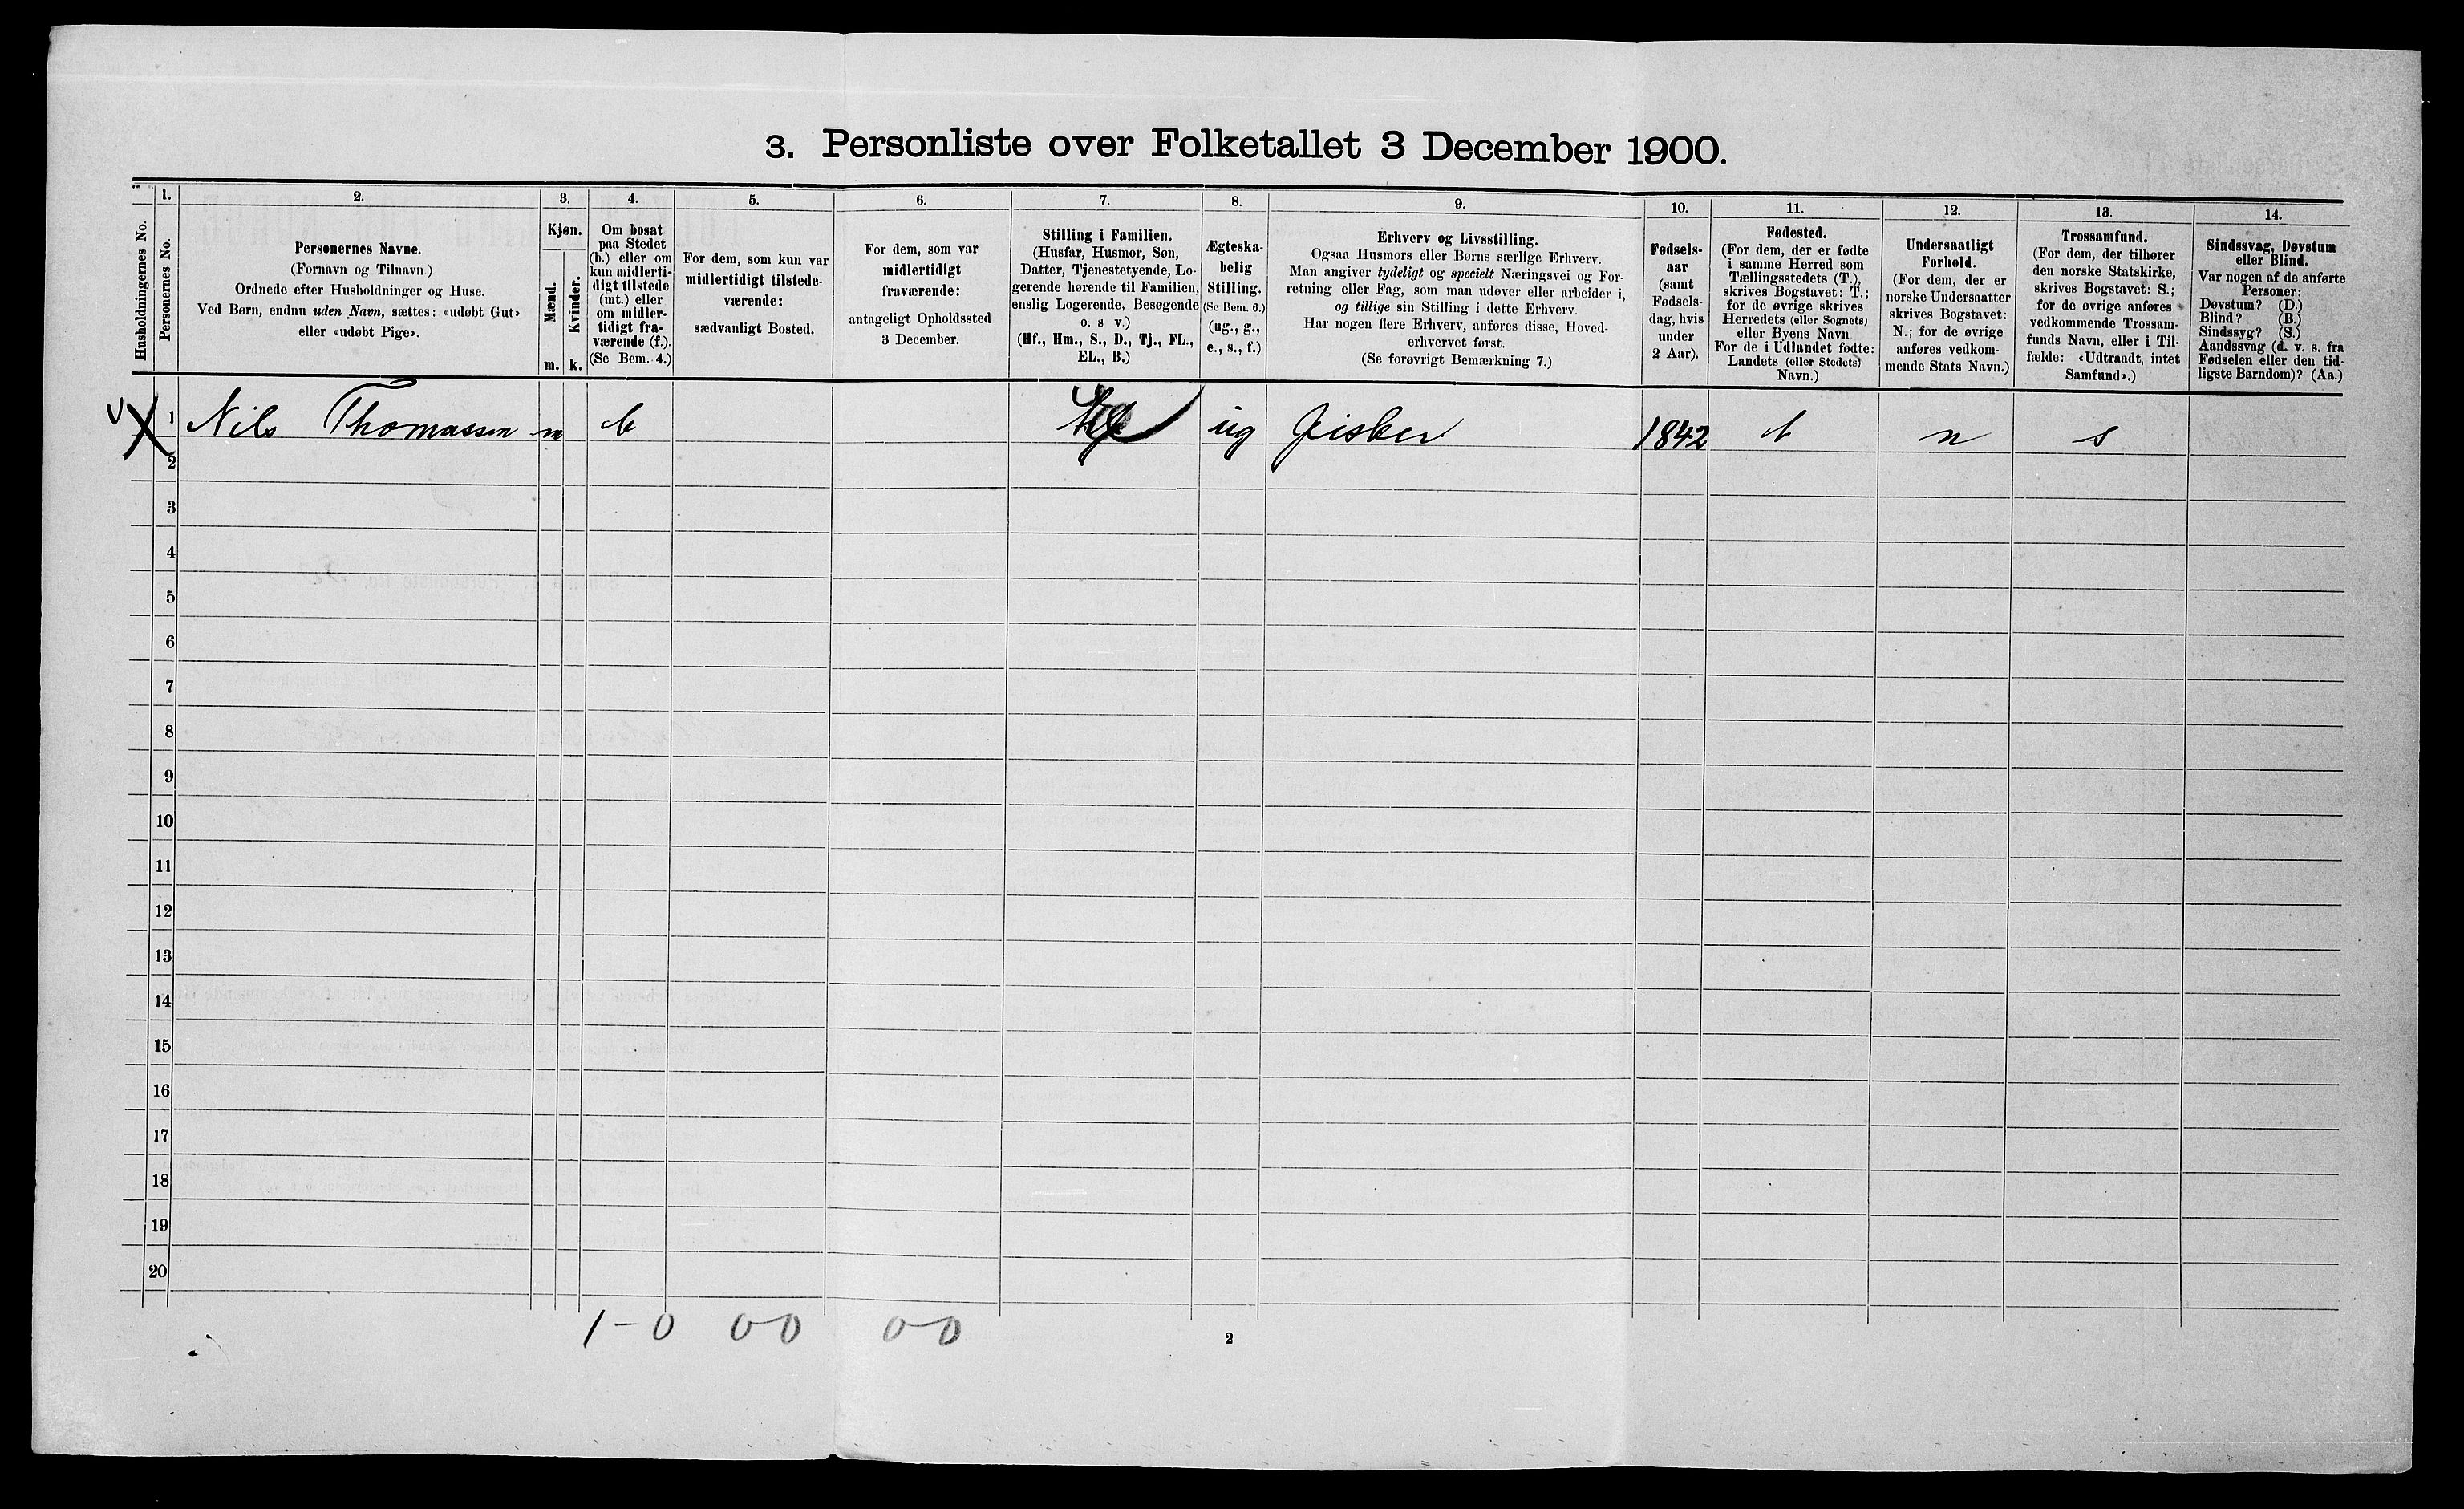 3. Personliste over Folketallet 3 December 1900.
Husholdningernes No.
1.
Personernes No.
2.
Personernes Navne.
(Fornavn og Tilnavn)
Ordnede efter Husholdninger og Huse.
Ved Børn, endnu uden Navn, sættes: «udøbt Gut»
eller «udøbt Pige».
3.
Kjøn.
Mænd.
m.
Kvinder.
k.
4.
Om bosat
paa Stedet
(b.) eller om
kun midlerti-
digt tilstede
(mt.) eller
om midler-
tidigt fra-
værende (f.).
(Se Bem. 4.)
5.
For dem, som kun var
midlertidigt tilstede-
værende:
sædvanligt Bosted.
6.
For dem, som var
midlertidigt
fraværende:
antageligt Opholdssted
3 December.
7.
Stilling i Familien.
(Husfar, Husmor, Søn,
Datter, Tjenestetyende, Lo-
gerende hørende til Familien,
enslig Logerende, Besøgende
o. s v.)
(Hf., Hm., S., D., Tj., FL.,
EL., B.)
8.
Ægteska-
belig
Stilling.
(Se Bem. 6.)
(ug., g.,
e., s., f.)
9.
Erhverv og Livsstilling.
Ogsaa Husmors eller Børns særlige Erhverv.
Man angiver tydeligt og specielt Næringsvei og For-
retning eller Fag, som man udøver eller arbeider i,
og tillige sin Stilling i dette Erhverv.
Har nogen flere Erhverv, anføres disse, Hoved-
erhvervet først.
(Se forøvrigt Bemærkning 7.)
10.
Fødsels-
aar
(samt
Fødsels-
dag, hvis
under
2 Aar).
11.
Fødested.
(For dem, der er fødte
i samme Herred som
Tællingsstedets (T.),
skrives Bogstavet: T.;
for de øvrige skrives
Herredets (eller Sognets)
eller Byens Navn
For de i Udlandet fødte:
Landets (eller Stedets)
Navn.)
12.
Undersaatligt
Forhold.
(For dem, der er
norske Undersaatter
skrives Bogstavet:
N.; for de øvrige
anføres vedkom-
mende Stats Navn.)
13.
Trossamfund.
(For dem, der tilhører
den norske Statskirke,
skrives Bogstavet: S.;
for de øvrige anføres
vedkommende Trossam-
funds Navn, eller i Til-
fælde: «Udtraadt, intet
Samfund».)
14.
Sindssvag, Døvstum
eller Blind.
Var nogen af de anførte
Personer:
Døvstum? (D.)
Blind? (B.)
Sindssyg? (S.)
Aandssvag (d. v. s. fra
Fødselen eller den tid-
ligste Barndom)? (Aa.)
1 Nils Thomassen m b ug fisker 1842 t n s
2
3
4
5
6
7
8
9
10
11
12
13
14
15
16
17
18
19
20
1-0 0-0 0-0
2